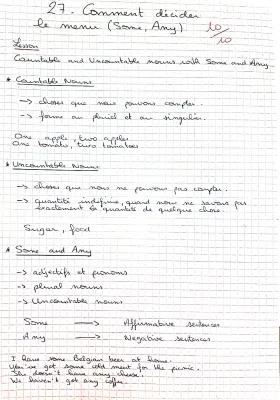 27. Comment décider
le menu (Some, Any)
10/10
Lesson
Countable and Uncountable nouns with Some and Any.
* Countable Nouns
-> choses que nous pouvons compter.
-> forme au pluriel et au singulier.
One apple, two apples
One tomato, two tomatoes
* Uncountable Nouns
-> choses que nous ne pouvons pas compter.
-> quantité indéfinie, quand nous ne savons pas
exactement la quantité de quelque chose.
Sugar, food
* Some and Any
-> adjectifs et pronoms
-> plural nouns
-> Uncountable nouns
Some -> Affirmative sentences
Any -> Negative sentences
I have some Belgian beer at home.
You've got some cold meat for the picnic.
She doesn't have any cheese.
We haven't got any coffee.